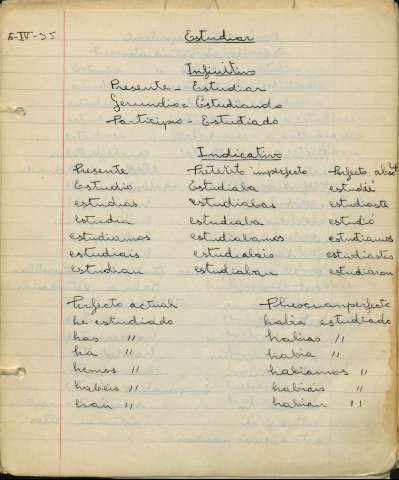 5-IV-35 Estudiar
Infinitivo
Presente - Estudiar
Gerundio = Estudiando
Participio - Estudiado
Indicativo
Presente Pretérito imperfecto Perfecto absol
Estudio Estudiaba estudié
estudias estudiabas estudiaste
estudia estudiaba estudió
estudiamos estudiabamos estudiamos
estudiais estudiabais estudiasteis
estudian estudiaban estudiaron
Perfecto actual Pluscuamperfecto
he estudiado habia estudiado
has " habias "
ha " habia "
hemos " habiamos "
habéis " habiais "
han " habian "